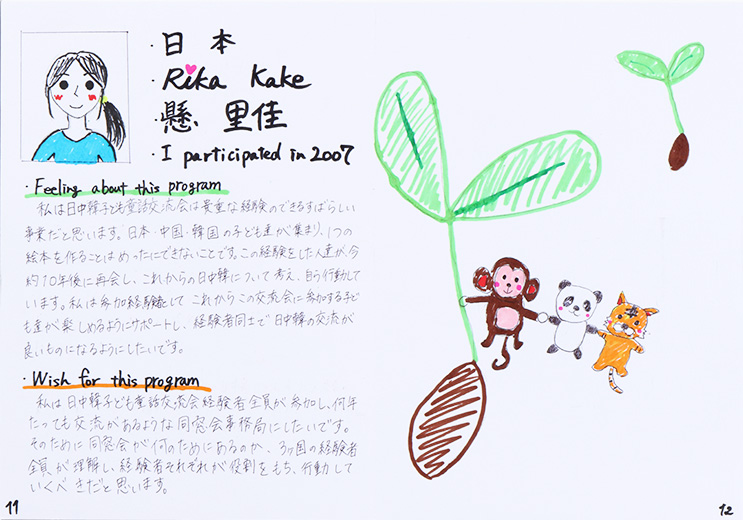 ・日本
・Rika Kake
・懸 里佳
・I participated in 2007
・Feeling about this program
私は日中韓子ども童話交流会は貴重な経験のできるすばらしい
事業だと思います。日本・中国・韓国の子ども達が集まり、1つの
絵本を作ることはめったにできないことです。この経験をした人達が、今
約10年後に再会し、これからの日中韓について考え、自ら行動して
います。私は参加経験者としてこれからこの交流会に参加する子ど
も達が楽しめるようにサポートし、経験者同士で日中韓の交流が
良いものになるようにしたいです。
・Wish for this program
私は日中韓子ども童話交流会経験者全員が参加し、何年
たっても交流があるような同窓会事務局にしたいです。
そのために同窓会が何のためにあるのか、3ヶ国の経験者
全員が理解し、経験者それぞれが役割をもち、行動して
いくべきだと思います。
11
12